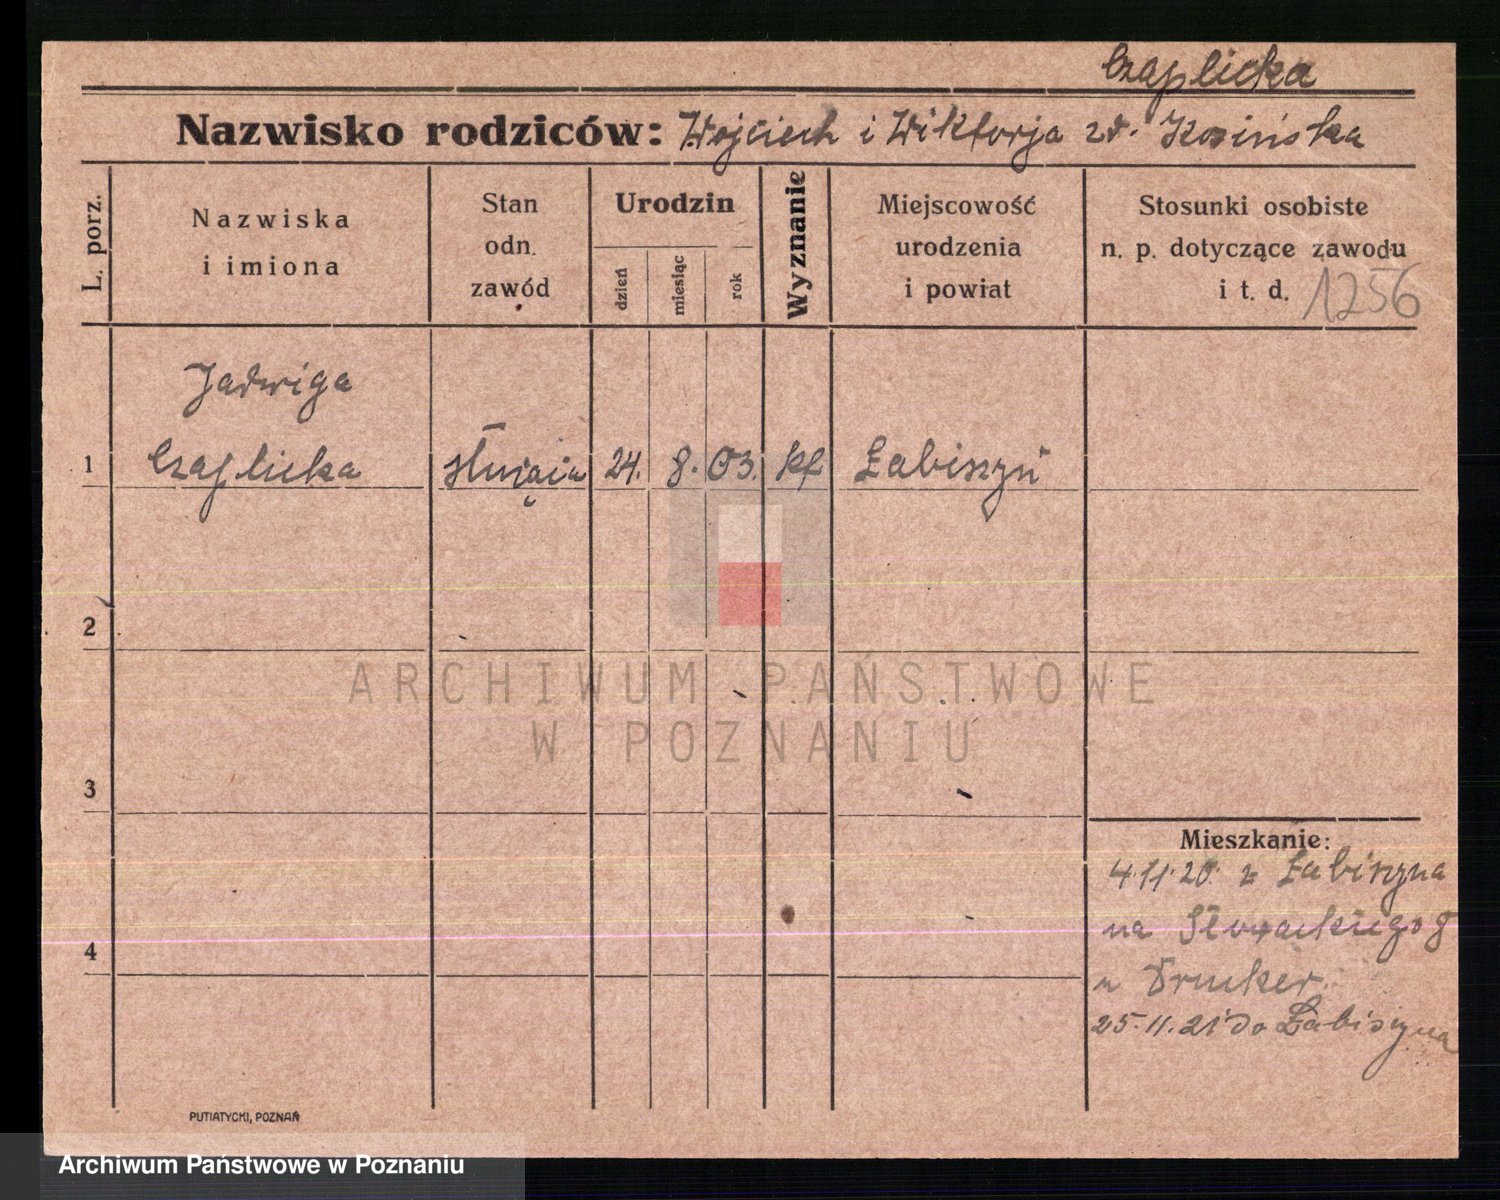 Czaplicka
Nazwisko rodziców: Wojciech i Wiktorja zd. Kosińska
L. porz.
Nazwiska
i imiona
Stan
odn.
zawód
Urodzin
dzień
miesiąc
rok
Wyznanie
Miejscowość
urodzenia
i powiat
Stosunki osobiste
n. p. dotyczące zawodu
i t. d. 1256
Jadwiga
1 Czaplicka służąca 24. 8. 03. kł Łabiszyń
2
3
4
Mieszkanie:
4.11.20. z Łabiszyna
na Słowackiego 8
u Drucker.
25.11.21 do Łabiszyna
PUTIATYCKI, POZNAŃ
ARCHIWUM PAŃSTWOWE
W POZNANIU
Archiwum Państwowe w Poznaniu